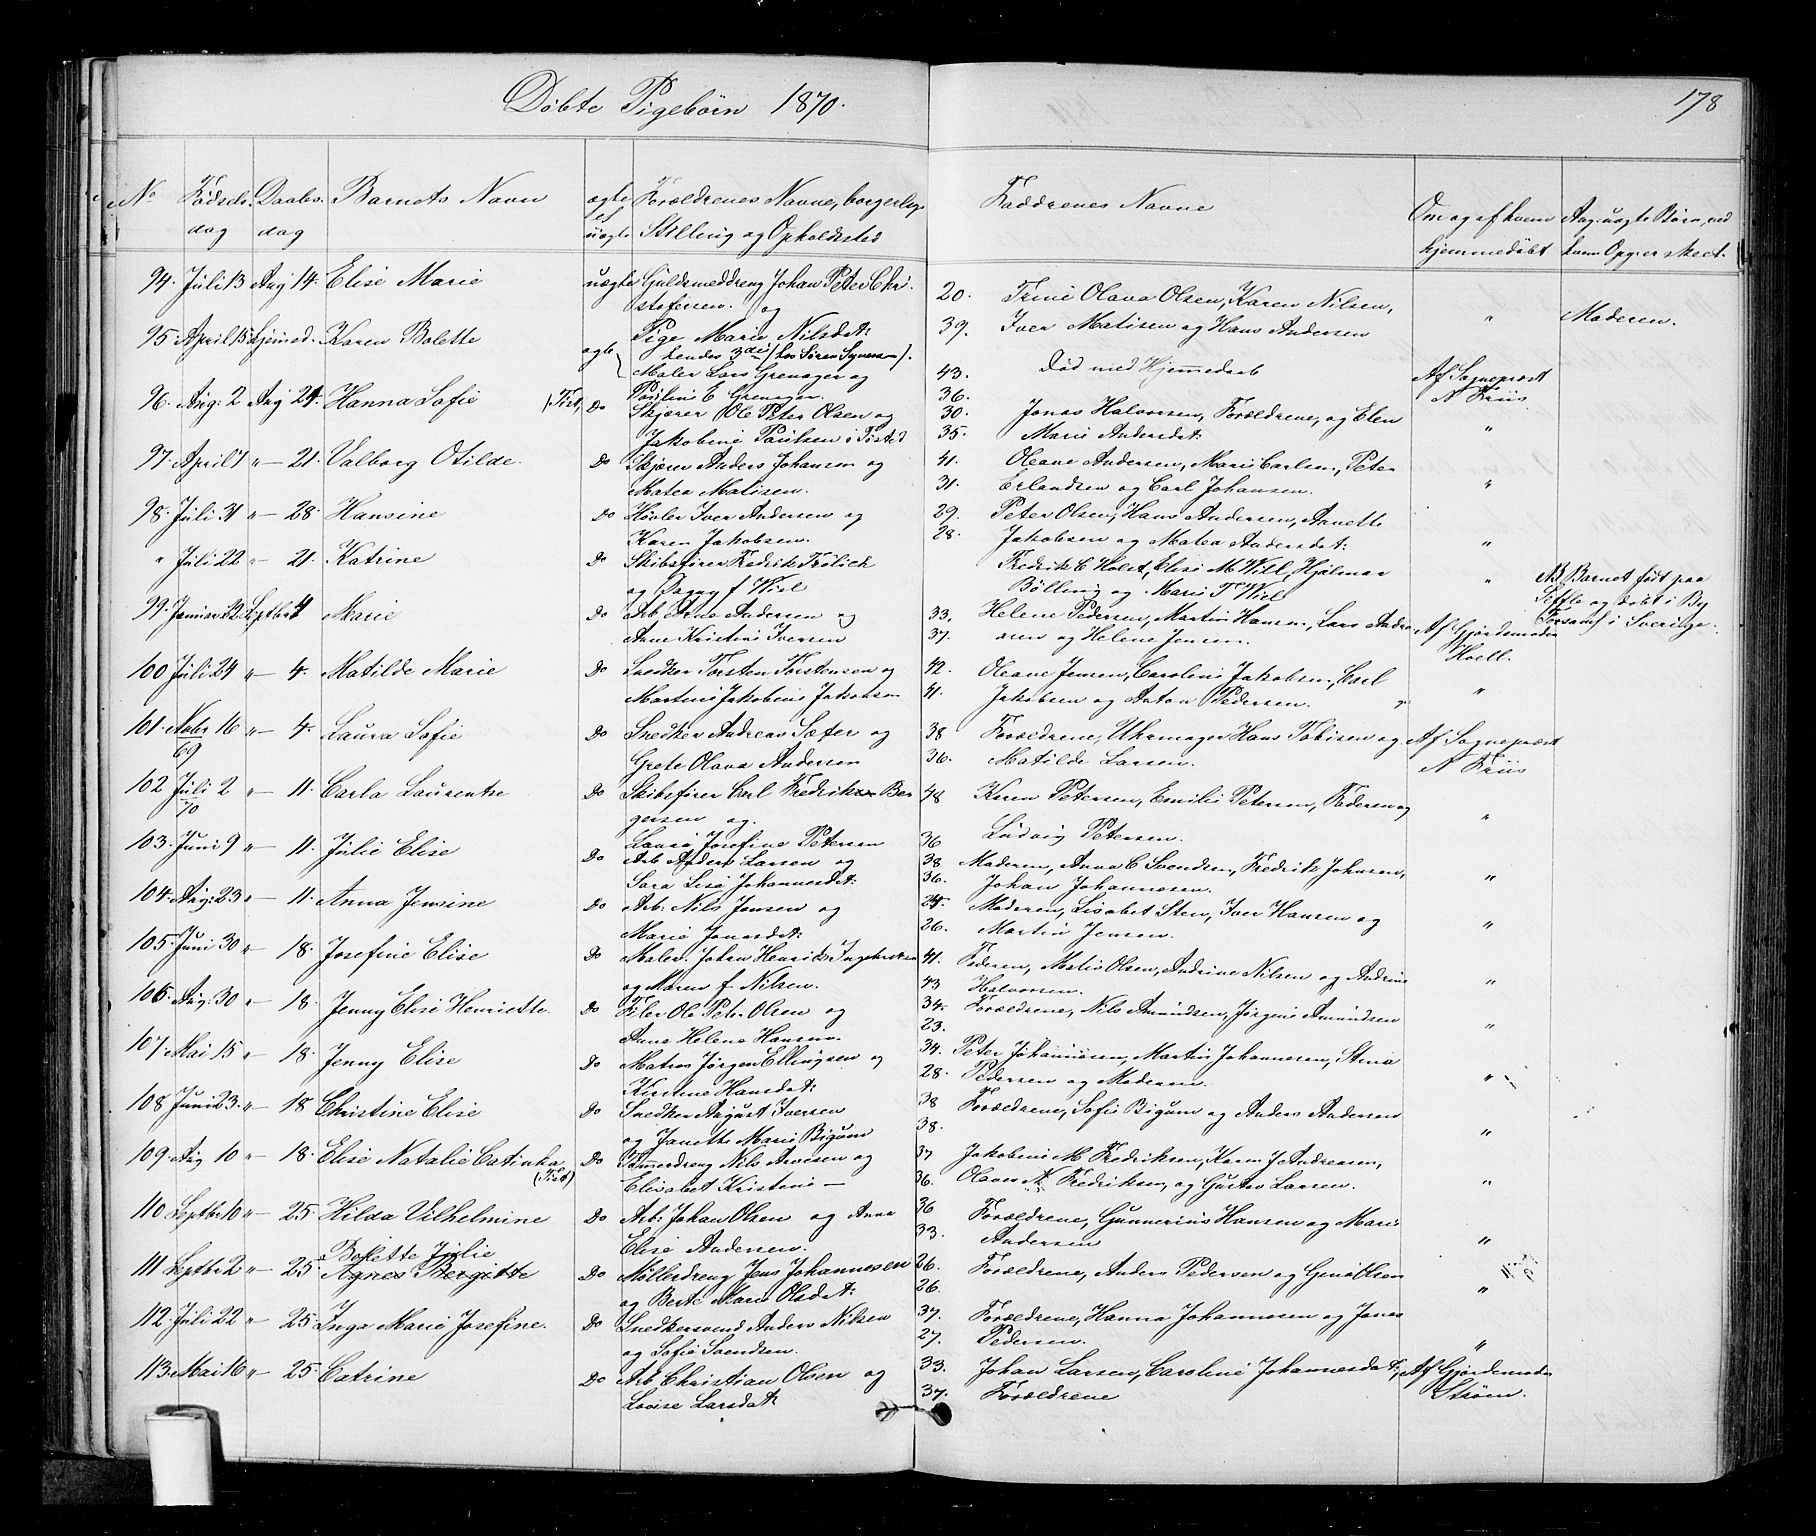 Døbte Pigebørn 1870.
178
No Fødsels- Daabs- Barnets Navn ægte Forældrenes Navne, borgerlige Faddrenes Navne Om og af hvem Ang: uægte Børn, ved
dag dag el uægte Stilling og Opholdssted hjemmedøbt hvem Opg: er skeet.
94. Juli 13 Aug 14. Elise Marie uægte Guldsmeddreng Johan Peter Chri- 20. Trine Olava Olsen, Karen Nilsen, " Moderen.
stofersen. og 39. Iver Matisen og Hans Andersen
Pige Marie Nilsdat:
hendes 3die (hos Sören
95. April 15 hjemmed. Karen Bolette ægte Maler Lars Grenager og 43. Død med Hjemmedaab Af Sognepræst
E Grenager. 36. N Friis
96. Aug: 2 Aug 21. Hanna Sofie (Tist, Do Skjærer Ole Peter Olsen og 30. Jonas Halvorsen, Forældrene, og Elen "
Jakobine Paulsen i Tisted 35. Marie Andersdat:
97. April 7 " — 21. Valborg Otilde. Do Skjærer Anders Johansen og 41. Oleane Andersen, Marie Carlsen, Peter "
Matea Matisen. 31. Erlandsen og Carl Johansen.
98. Juli 31 " — 28. Hansine Do Høvler Iver Andersen og 29. Peter Olsen, Hans Andersen, Anette "
Karen Jakobsen. 28. Jakobsen og Matea Andersdat:
" Juli 22 " — 21. Katrine Do Skibsfører Fredrik Frölich Fredrik C Holst, Elise M Wiel, Hjalmar " NB Barnet født paa
og Dagny f Wiel Bølling og Marie T Wiel og døbt i By
99. Januar 12 Septbr 4 Marie Do Arb. Arne Andersen og 33. Helene Pedersen, Martin Hansen, Lars Andre- Af Gjordemoder Forsaml i Sverige.
Anne Kristine Iversen 37. asen og Helene Jensen. Hoell.
100 Juli 24 " — 4. Matilde Marie Do Snedker Torsten Torstensen og 42. Oleane Jensen, Caroline Jakobsen, Carl "
Martine Jakobine Jakobsen 41. Jakobsen og Anton Pedersen. "
101. Novbr 16 " — 4. Laura Sofie Do Snedker Andreas Sæter og 38 Forældrene, Uhrmager Hans Tobisen og Af Sognepræst
69 Grete Olava Andersen 36. Matilde Larsen. N Friis
102 Juli 2 " — 11. Carla Laurentse Do Skibsfører Carl Fredriksen Ber 48 Karen Petersen, Emilie Petersen, Faderen og "
70 gersen og.
Josefine Petersen 36 Ludvig Petersen.
103. Juni 9 " — 11. Julie Elise Do Arb Anders Larsen og 38 Moderen, Anna C Svendsen, Fredrik Johnsen, "
Sara Lise Johannesdat: 36. Johan Johannesen.
104. Aug: 23 " — 11. Anna Jensine Do Arb: Nils Jensen og 24. Moderen, Lisabet Sten, Iver Hansen og "
Marie Jonasdat: 26. Martin Jensen.
105. Juni 30 " — 18. Josefine Elise Do Maler Johan Henrik Ingebretsen 41. Faderen, Matis Olsen, Andrine Nilsen og Andrine "
og Maren f Nilsen. 43 Halvorsen.
106. Aug: 30 " — 18. Jenny Elise Henriette. Do Filer Ole Peter Olsen og 34. Forældrene, Nils Amundsen, Jørgine Amundsen "
Anne Helene Hansen. 23.
107. Mai 15 " — 18. Jenny Elise Do Matros Jørgen Ellingsen og 34. Peter Johannesen, Martin Johannesen, Stina "
Kirstine Hansdat: 28. Pedersen og Moderen.
108 Juni 23. " — 18 Christine Elise Do Snedker August Iversen 38 Forældrene, Sofie Bigum og Anders Andersen "
og Janette Marie Bigum 38.
109. Aug 10 " — 18. Elise Natalie Catinka Do Tømmerdreng Nils Arvesen og 37 Jakobine M. Fredriksen, Karen J Andreasen, "
(Tist) Elisabet Kristine — 36. Olaves N Fredriksen, og Gustav Larsen.
110 Septbr 10 " — 25. Hilda Vilhelmine Do Arb: Johan Olsen og Anne 36 Forældrene, Gunnerius Hansen og Marie "
Elise Andersen. 33. Andersen
Bolette Julie
111 Septbr 2 " — 25. Agnes Bergitte Do Møllerdreng Jens Johannesen 26. Forældrene, Anders Pedersen og Olsen "
og Berte Marie Olsdat: 26.
112. Juli 22 " — 25 Inga Marie Josefine. Do Snedkersvend Anders Nilsen 37. Forældrene, Hanna Johannesen og Jonas "
og Sofie Svendsen. 27. Pedersen.
113 Mai 16 " — 25 Catrine Do Arb Christian Olsen og 33. Johan Larsen, Caroline Johannesdat:, Af Gjordemoder
Lovise Larsdat: 37. Forældrene Strøm.